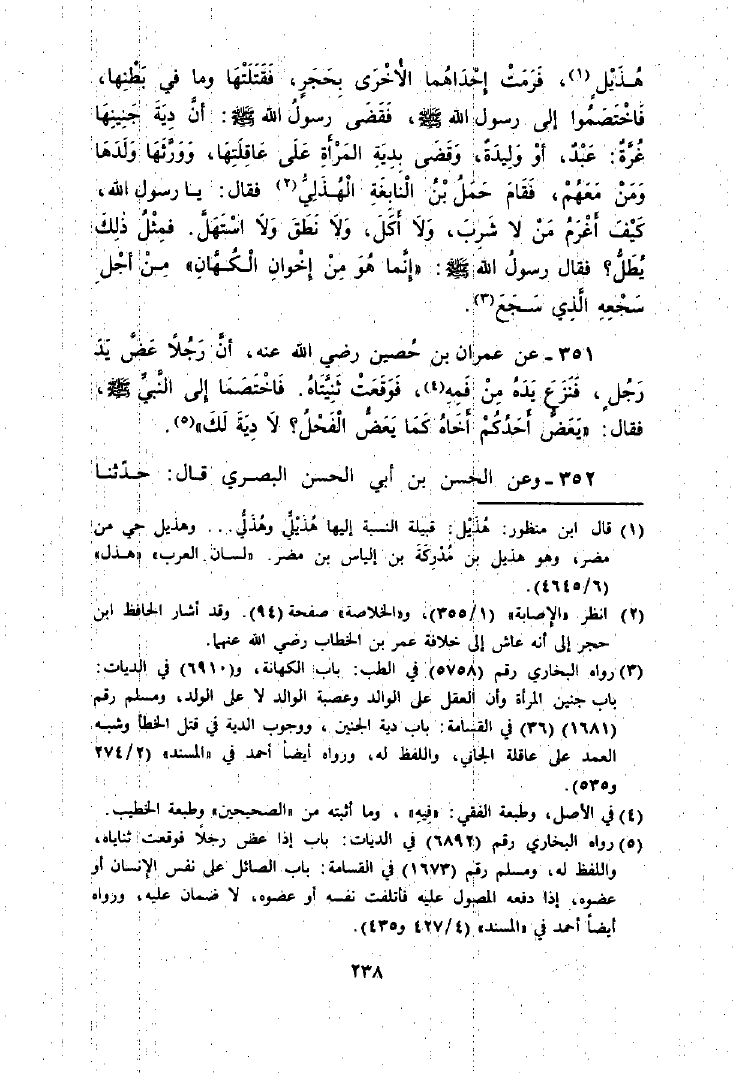 هُذَيْلٍ(١)، فَرَمَتْ إِحْدَاهُما الْأُخْرَى بِحَجَرٍ، فَقَتَلَتْهَا وما في بَطْنِها،
فَاخْتَصَمُوا إلى رسول الله ﷺ، فَقَضَى رسولُ الله ﷺ: أَنَّ دِيَةَ جَنِينِهَا
غُرَّةٌ: عَبْدٌ، أَوْ وَلِيدَةٌ، وَقَضَى بِدِيَةِ المَرْأَةِ عَلَى عَاقِلَتِهَا، وَوَرَّثَهَا وَلَدَهَا
وَمَنْ مَعَهُمْ، فَقَامَ حَمَلُ بْنُ النابِغَةِ الْهُذَلِيُّ(٢) فقال: يا رسول الله،
كَيْفَ أَغْرَمُ مَنْ لا شَرِبَ، وَلَا أَكَلَ، وَلَا نَطَقَ وَلَا اسْتَهَلَّ. فَمِثْلُ ذٰلِكَ
يُطَلُّ؟ فقال رسولُ الله ﷺ: «إِنَّما هُوَ مِنْ إِخْوانِ الْكُهَّانِ» مِنْ أَجْلِ
سَجْعِهِ الَّذِي سَجَعَ(٣).
٣٥١ - عن عمران بن حُصين رضي الله عنه، أَنَّ رَجُلًا عَضَّ يَدَ
رَجُلٍ، فَنَزَعَ يَدَهُ مِنْ فَمِهِ(٤)، فَوَقَعَتْ ثَنِيَّتَاهُ. فَاخْتَصَمَا إلى النَّبيِّ ﷺ،
فقال: «يَعَضُّ أَحَدُكُمْ أَخَاهُ كَمَا يَعَضُّ الْفَحْلُ؟ لَا دِيَةَ لَكَ»(٥).
٣٥٢ - وعن الحسن بن أبي الحسن البصري قال: حدّثنا
(١) قال ابن منظور: هُذَيْل: قبيلة النسبة إليها هُذَيْليٌّ وهُذَليٌّ... وهذيل حي من
مضر، وهو هذيل بن مُدْرِكَة بن إلياس بن مضر. «لسان العرب» «هذل»
(٤٦٤٥/٦).
(٢) انظر «الإصابة» (٣٥٥/١)، و«الخلاصة» صفحة (٩٤). وقد أشار الحافظ ابن
حجر إلى أنه عاش إلى خلافة عمر بن الخطاب رضي الله عنهما.
(٣) رواه البخاري رقم (٥٧٥٨) في الطب: باب الكهانة، و(٦٩١٠) في الديات:
باب جنين المرأة وأن العقل على الوالد وعصبة الوالد لا على الولد، ومسلم رقم
(١٦٨١) (٣٦) في القسامة: باب دية الجنين، ووجوب الدية في قتل الخطأ وشبه
العمد على عاقلة الجاني، واللفظ له، ورواه أيضاً أحمد في «المسند» (٢٧٤/٢
و٥٣٥).
(٤) في الأصل، وطبعة الفقي: «فيه»، وما أثبته من «الصحيحين» وطبعة الخطيب.
(٥) رواه البخاري رقم (٦٨٩٢) في الديات: باب إذا عض رجلًا فوقعت ثناياه،
واللفظ له، ومسلم رقم (١٦٧٣) في القسامة: باب الصائل على نفس الإنسان أو
عضوه، إذا دفعه المصول عليه فأتلفت نفسه أو عضوه، لا ضمان عليه، ورواه
أيضاً أحمد في «المسند» (٤٢٧/٤ و٤٣٥).
٢٣٨